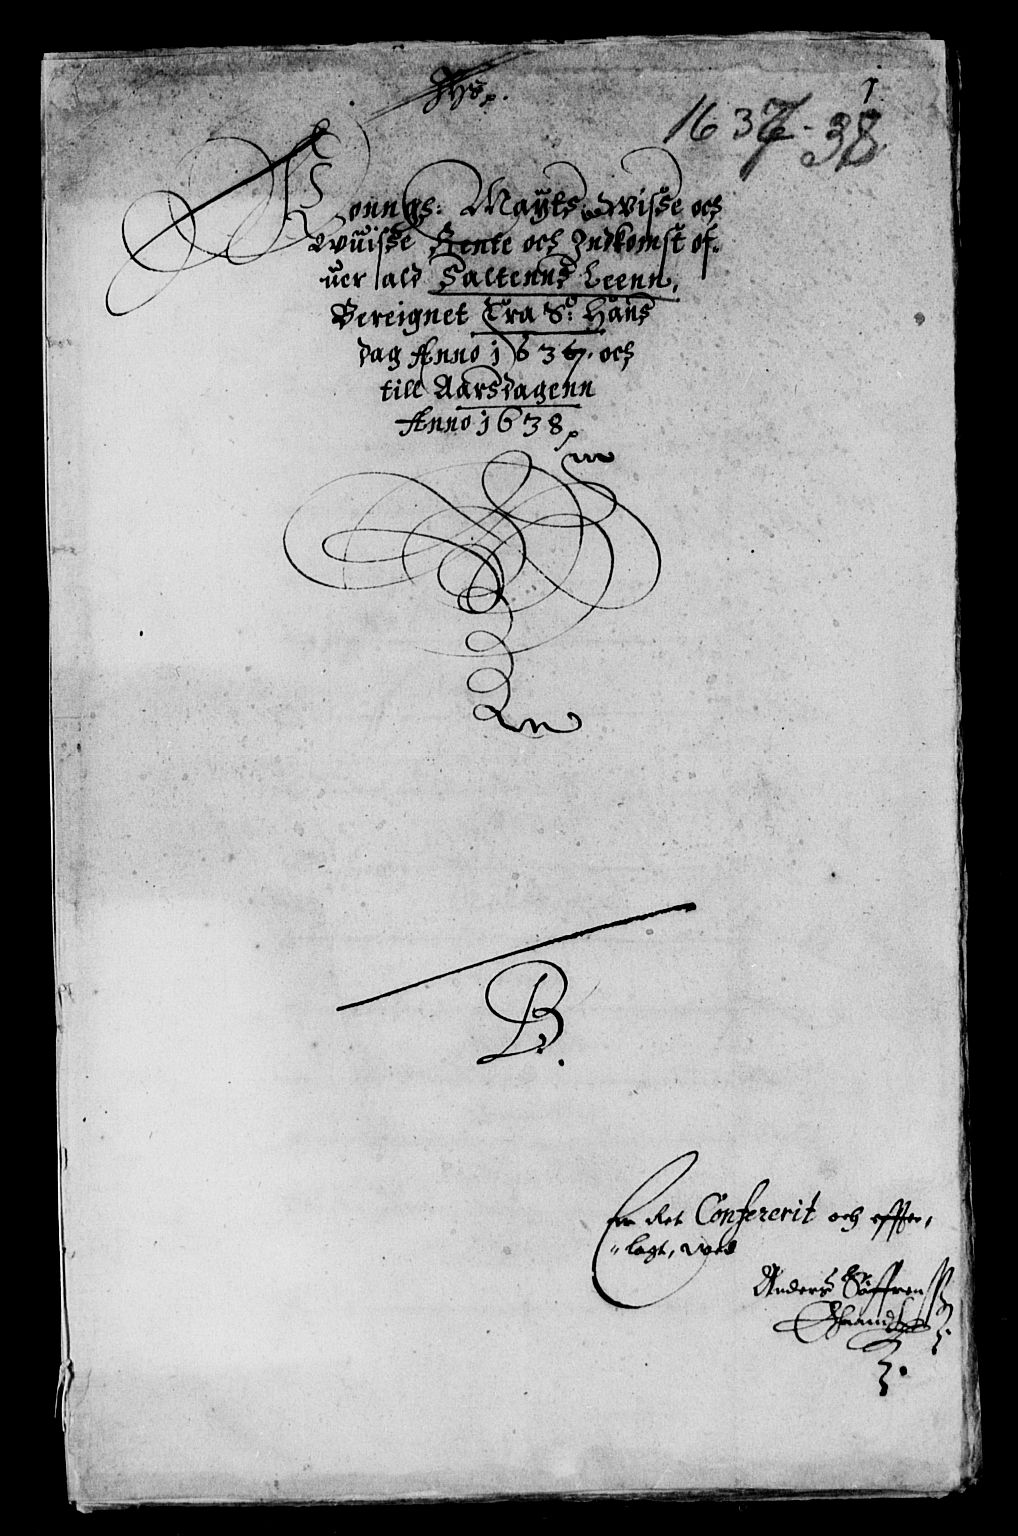 1
1637-38
Konngs: Mayts wisse och
Wuisse Rente och Indkomst of-
uer ald Saltenns Leenn,
Bereignet Fra S: Hans
dag Anno 1637. och
till Aarsdagenn
Anno 1638
B.
Er Ret Confererit och effter,
"lagt, wed
Anders Söffrens